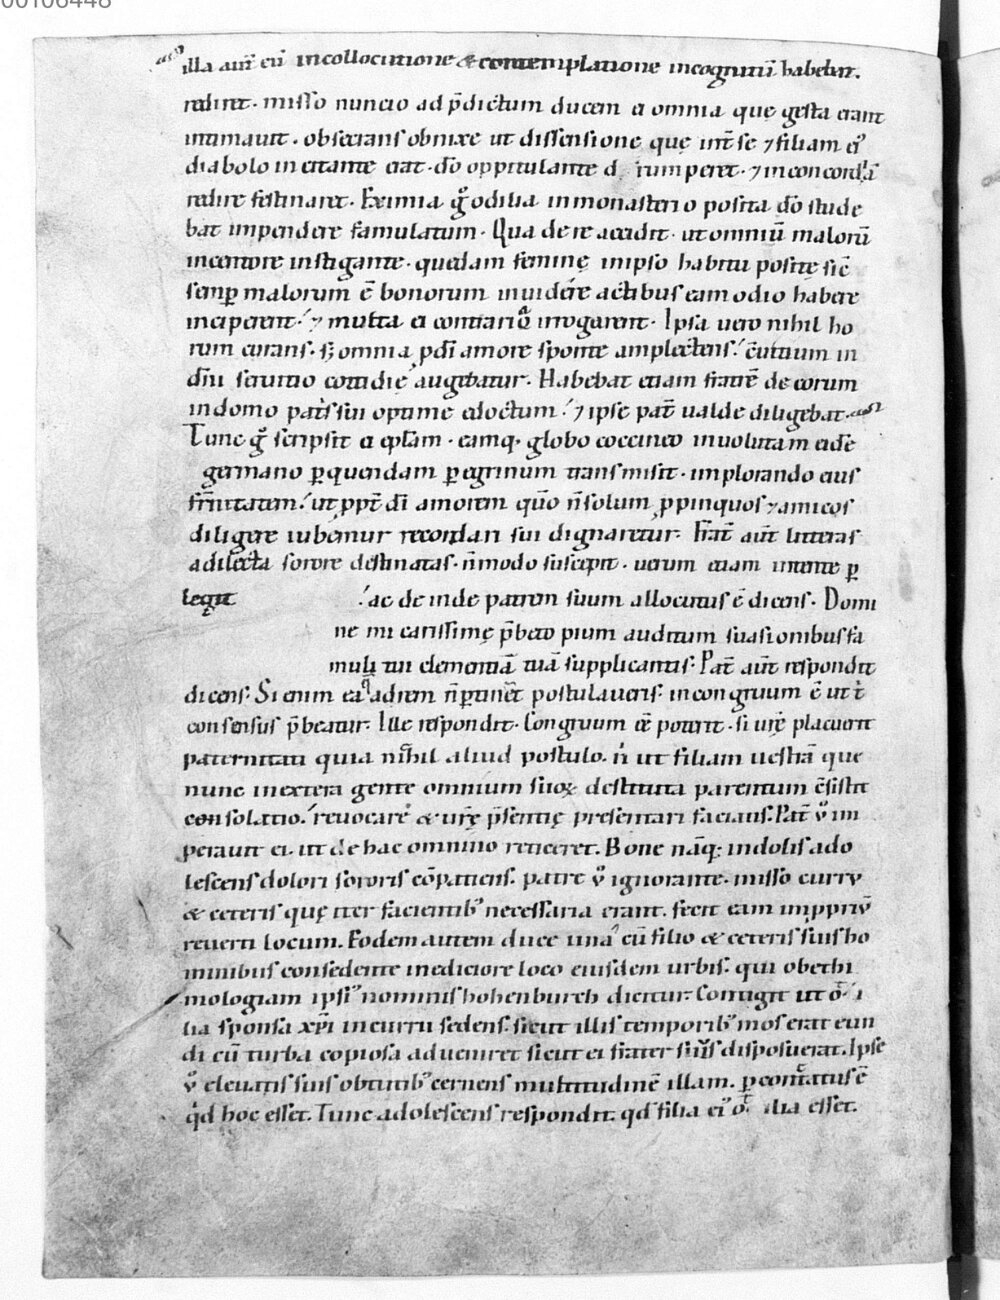 00106448
illa aut̄ eū incollocutione & contemplatione incognitū habebat.
rediret. misso nuncio ad p̄dictum ducem ei omnia que gesta erant
intimauit. obsecrans obnixe ut dissensione quę int̄ se ⁊ filiam ei᾽
diabolo incitante erat. dō oppitulante rumperet. ⁊ inconcordiā
redire festinaret. Eximia g̊ odilia inmonasterio posita dō stude
bat impendere famulatum. Qua de re accidit. ut omniū malorū
incentore instigante. quedam feminę inipso habitu positę sic̄
semp̱ malorum ē bonorum inuidere actibus eam odio habere
inciperent. ⁊ multa ei contraria irrogarent. Ipsa uero nihil ho
rum curans. s; omnia p̱ dī amore sponte amplectens. in
dīni seruitio cottidie augebatur. Habebat etiam fratrē decorum
indomo patris sui optime edoctum. ⁊ ipse pat̄ ualde diligebat.
Tunc g̊ scripsit ei ep̄lam. eamq; globo coccineo inuolutam eidē
germano p̱ quendam p̱egrinum transmisit. implorando eius
fr̄nitatem. ut ppt̄ dī amorem quō n̄ solum ꝓpinquos ⁊ amicos
diligere iubemur recordari sui dignaretur. Frat̄ aut̄ litteras
adilecta sorore destinatas. n̄ modo suscepit. uerum etiam intente p̱
legit ac deinde patrem suum allocutus ē dicens. Domi
ne mi carissimę p̄beto pium auditum suasionibus fa
muli tui clementiā tuā supplicantis. Pat̄ aut̄ respondit
dicens. Si enim ea q̄ ad rem n̄ ptinet postulaueris. incongruum ē ut t̄
consensus p̄beatur. Ille respondit. Congruum eē poterit. si urę̄ placuerit
paternitati quia nihil aliud postulo. n̄ ut filiam uestrā que
nunc inextera gente omnium suoꝝ destituta parentum c̄sistit
consolatio. reuocare & urę̄ p̄sentię presentari facias. Pat̄ v̊ im
perauit ei. ut de hac omnino reticeret. Bone nāq; indolis ado
lescens dolori sororis cōpatiens. patre v̊ ignorante. misso curru
& ceteris quę iter facientib; necessaria erant. fecit eam
reuerti locum. Eodem autem duce una cū filio & ceteris suis ho
minibus consedente ineditiore loco eiusdem urbis. qui obethi
mologiam ipsi᾽ nominis hohenburch dicitur. Contigit ut o᷒ i
lia sponsa xp̄i incurru sedens. sicut illis temporib; mos erat eun
di cū turba copiosa adueniret sicut ei frater suus disposuerat. Ipse
v̊ eleuatis suis obtutib; cernens multitudinē illam. p̱contatus ē
qd̄ hoc esset. Tunc adolescens respondit. qd̄ filia ei᾽ o᷒ ilia esset.